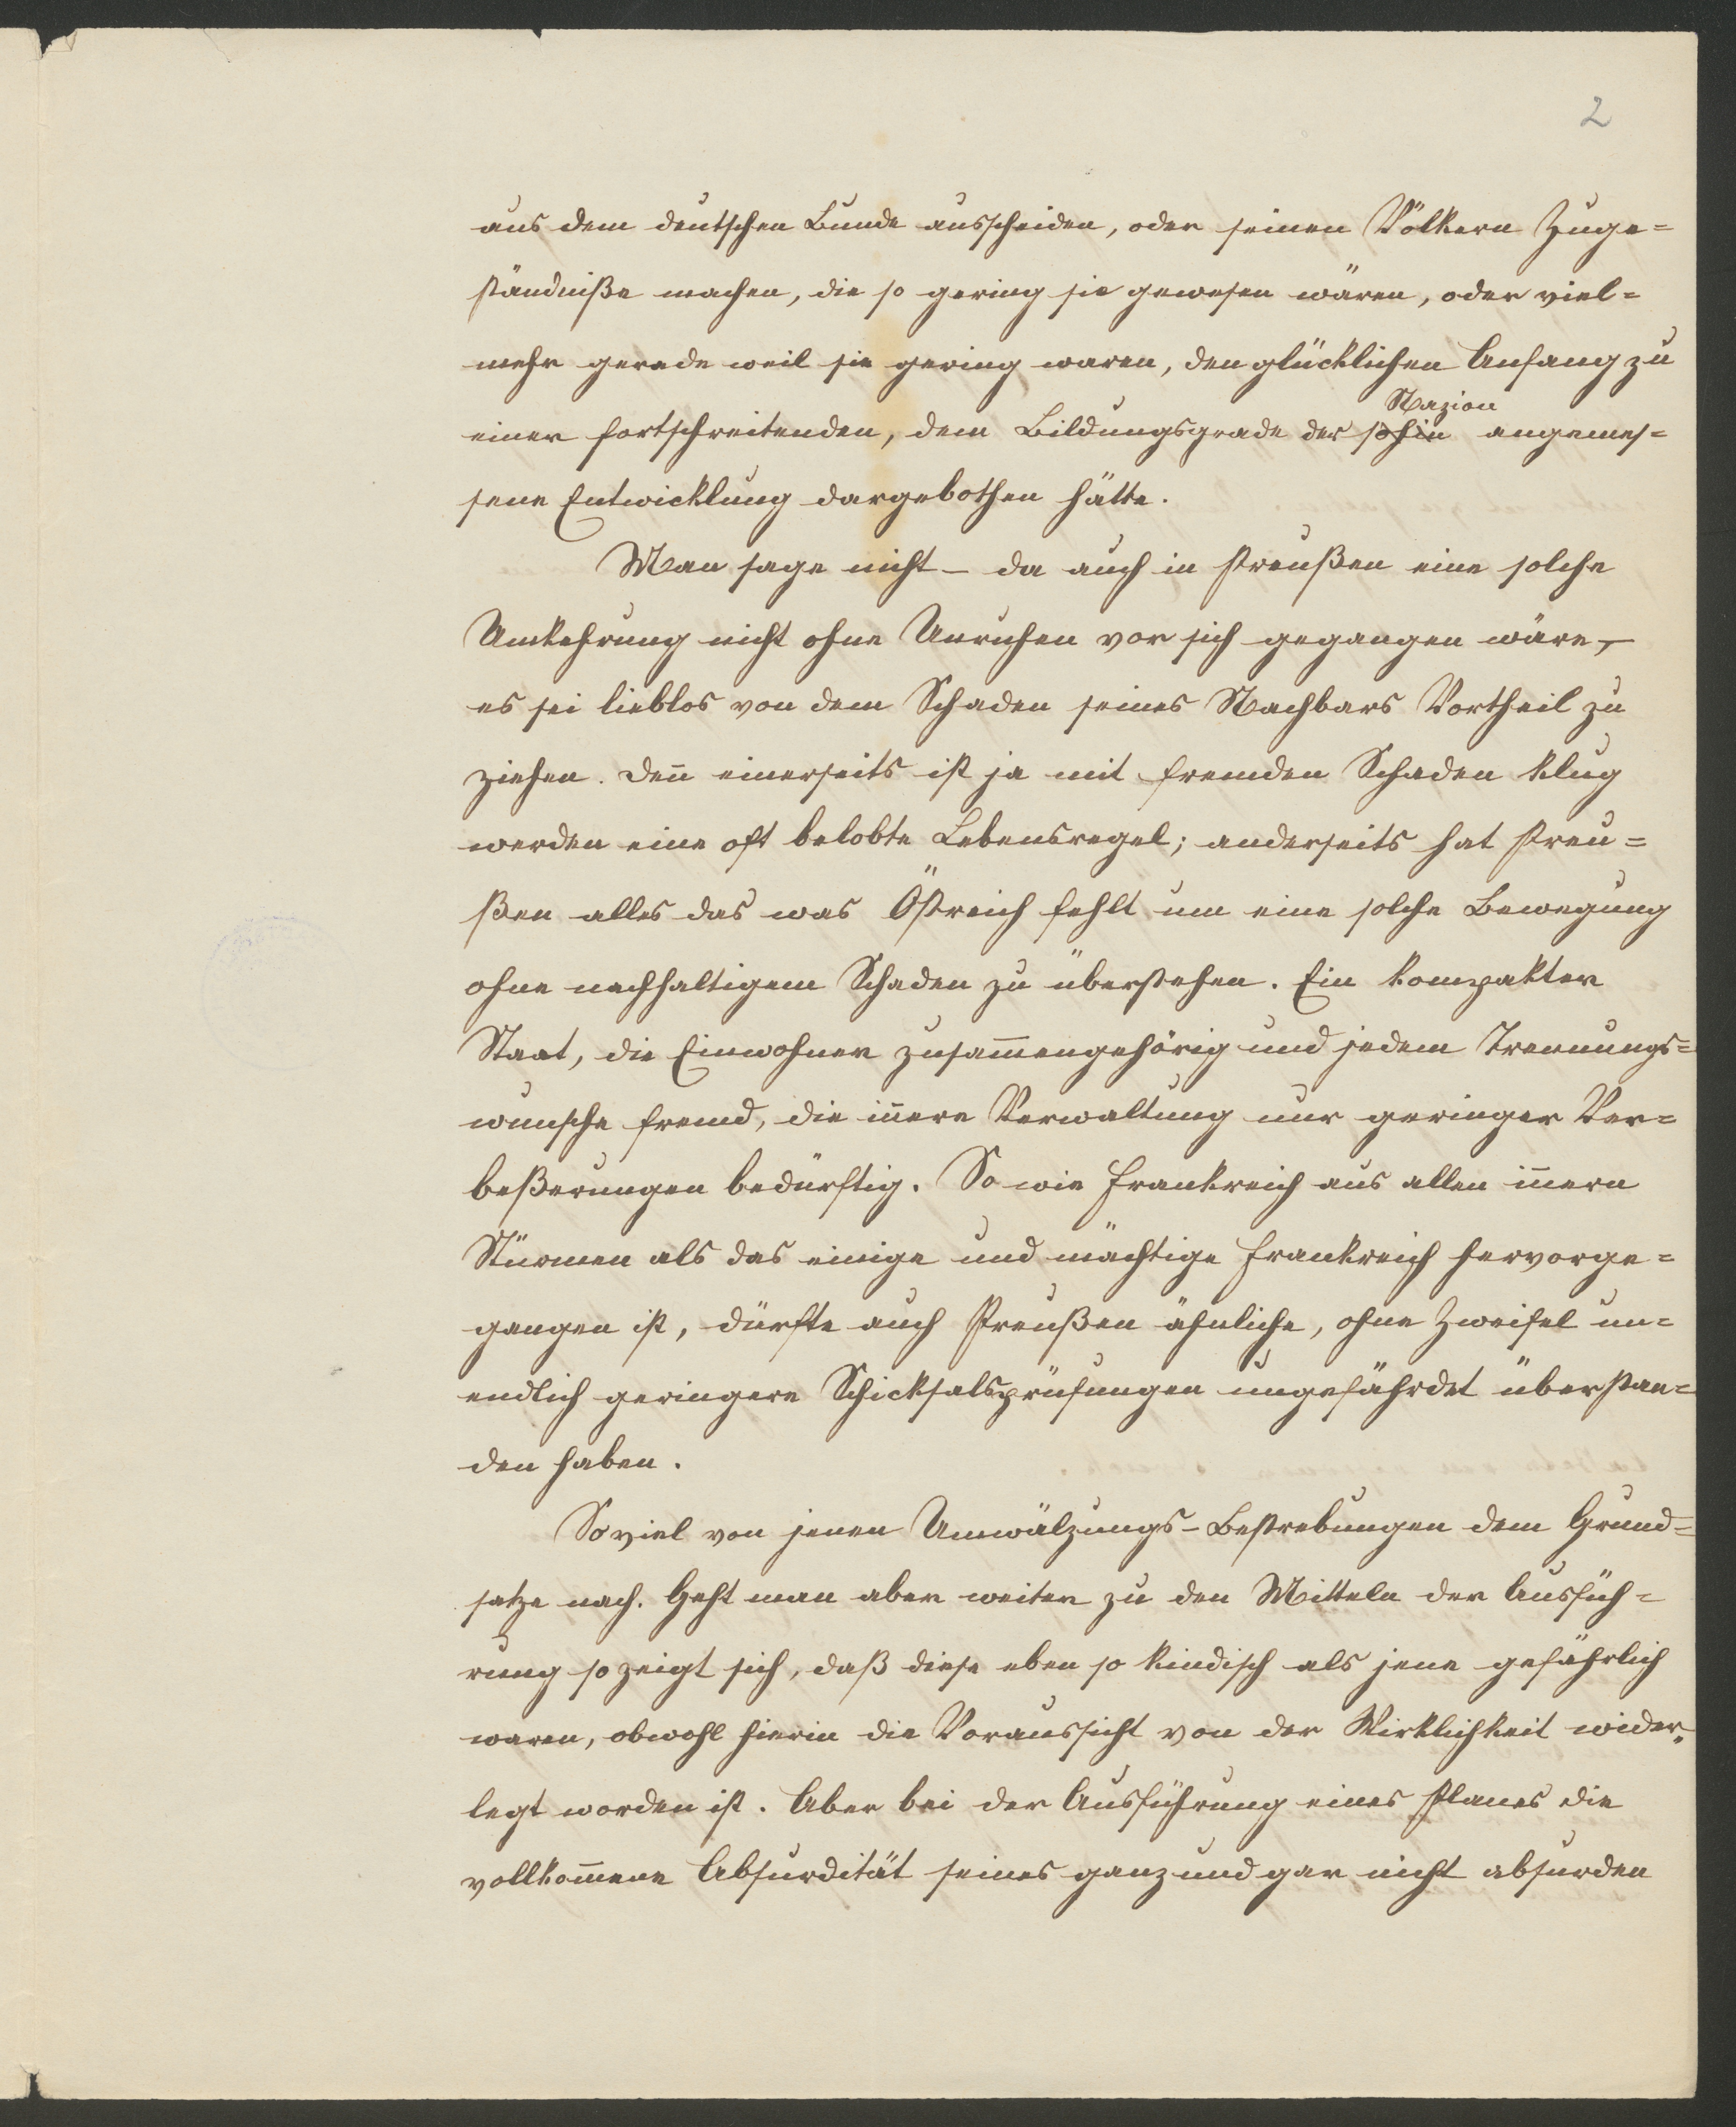 2
aus dem deutschen Bunde ausscheiden, oder seinen Völkern Zuge=
ständniße machen, die so gering sie gewesen wären, oder viel=
mehr gerade weil sie gering waren, den glücklichen Anfang zu
Nazion
einer fortschreitenden, dem Bildungsgrade der sohin angemes=
sene Entwicklung dargebothen hätte.
Man sage nicht – da auch in Preußen eine solche
Umkehrung nicht ohne Unruhen vor sich gegangen wäre, –
es sei lieblos von dem Schaden seines Nachbars Vortheil zu
ziehen. Deñ einerseits ist ja mit fremden Schaden klug
werden eine oft belobte Lebensregel; anderseits hat Preu=
ßen alles das was Östreich fehlt um eine solche Bewegung
ohne nachhaltigem Schaden zu überstehen. Ein kompakter
Staat, die Einwohner zusam̅engehörig und jedem Trennungs=
wunsche fremd, die iñere Verwaltung nur geringer Ver=
beßerungen bedürftig. So wie Frankreich aus allen iñern
Stürmen als das einige und mächtige Frankreich hervorge=
gangen ist, dürfte auch Preußen ähnliche, ohne Zweifel un=
endlich geringere Schicksalsprüfungen ungefährdet überstan=
den haben.
Soviel von jenen Umwälzungs-Bestrebungen dem Grund=
satze nach. Geht man aber weiter zu den Mitteln der Ausfüh=
rung so zeigt sich, daß diese eben so kindisch als jene gefährlich
waren, obwohl hierin die Voraussicht von der Wirklichkeit wider„
legt worden ist. Aber bei der Ausführung eines Planes die
vollkom̅ene Absurdität seines ganz und gar nicht absurden